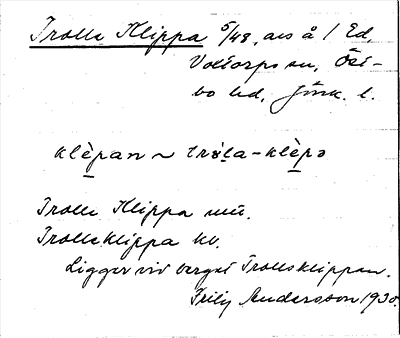 Trolle Klippa 5/48, avs å / Ed,
Voxtorps sn, Öst-
bo hd, Jönk. l.
klèpan ~ tròla-klèpə
Trolle Klippa mü.
Trolleklippa hv.
Ligger vid berget Trollsklippan.
Andersson 1930.